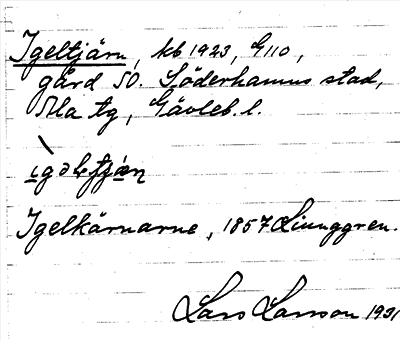 Igeltjärn, kb 1923, G110,
gård SO. Söderhamns stad,
Ala tg, Gävleb. l.
Igelkärnarne, 1857 Ljunggren.
Lars Larsson 1931